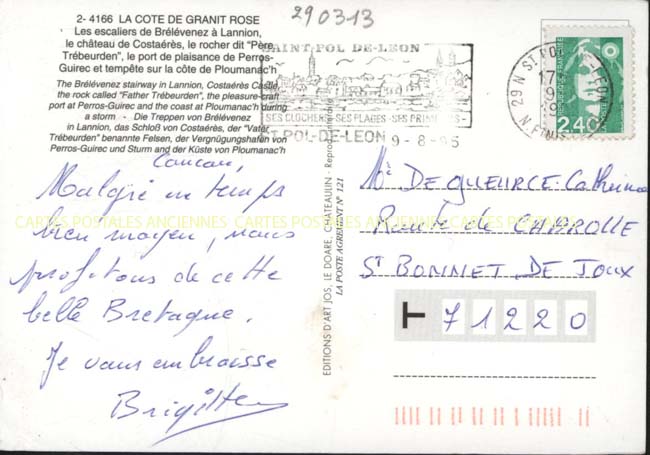 290313
2- 4166 LA COTE DE GRANIT ROSE
Les escaliers de Brélévenez à Lannion,
le château de Costaérès, le rocher dit "Père
Trébeurden", le port de plaisance de Perros-
Guirec et tempête sur la côte de Ploumanac'h
The Brélévenez stairway in Lannion, Costaérès Castle,
the rock called "Father Trébeurden", the pleasure-craft
port at Perros-Guirec and the coast at Ploumanac'h during
a storm - Die Treppen von Brélévenez
in Lannion, das Schloß von Costaérès, der "Vater
Trébeurden" benannte Felsen, der Vergnügungshafen von
Perros-Guirec und Sturm and der Küste von Ploumanac'h
SAINT POL DE-LEON
SES CLOCHERS SES PLAGES-SES PRIMEURS
ST POL-DE-LEON
9-8-95
29 N ST POL
17
N FINIS
2,40
Coucou,
Malgré un temps
bien moyen, nous
profitons de cette
belle Bretagne.
Je vous embrasse
Brigitte
CARTES POSTALES ANCIENNES CARTES POSTALES ANCIENNES CARTES POSTALES ANCIENNES
EDITIONS D'ART JOS, LE DOARE, CHATEAULIN - Reprod.
LA POSTE AGREMENT N° 121
DE QUEURCE Catherine
Route de CHAROLLE
St BONNET DE JOUX
T 71220